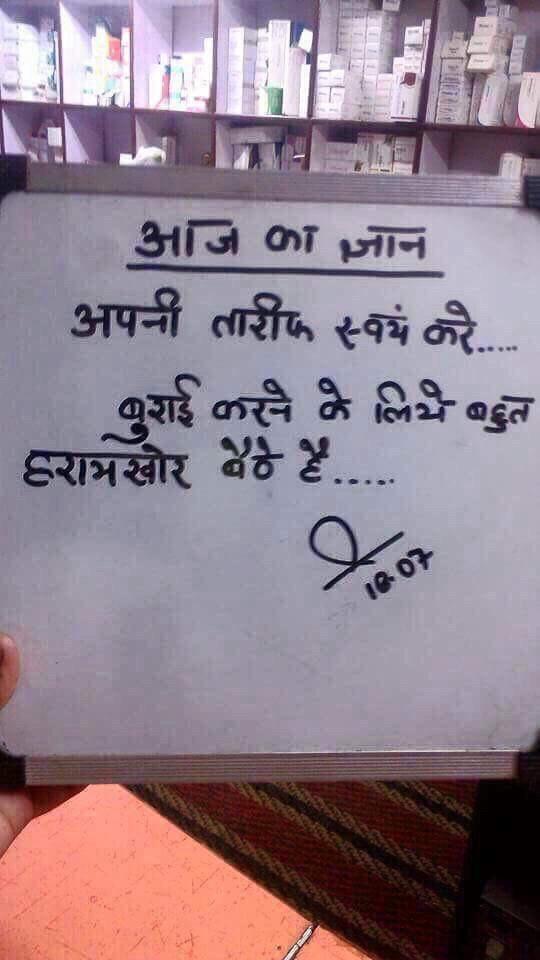 आज का ज्ञान
अपनी तारीफ स्वयं करे.....
बुराई करने के लिये बहुत
हरामखोर बैठे है.....
18-07